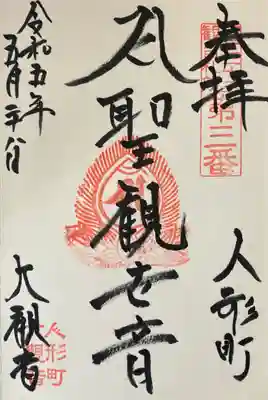 奉拝
第三番
人形町
聖観世音
令和五年
五月二十八日
大観音
人形町
観音